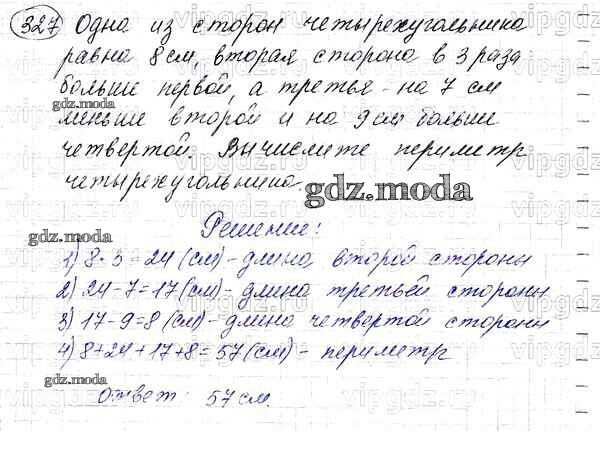 327 Одна из сторон четырехугольника
равна 8 см, вторая сторона в 3 раза
больше первой, а третья - на 7 см
gdz.moda
меньше второй и на 9 см больше
четвертой. Вычислите периметр
четырехугольника.
gdz.moda
Решение:
gdz.moda
1) 8·3=24 (см) - длина второй стороны
2) 24-7=17 (см) - длина третьей стороны
3) 17-9=8 (см) - длина четвертой стороны
4) 8+24+17+8=57 (см) - периметр
gdz.moda
Ответ: 57 см.